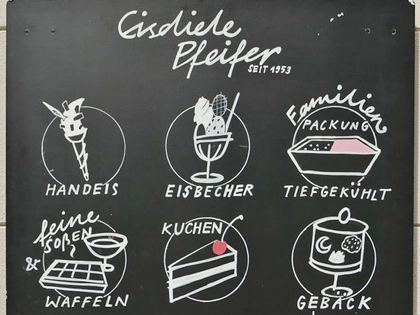 Eisdiele
Pfeifer
SEIT 1953
HANDEIS
EISBECHER
Familien
PACKUNG
TIEFGEKÜHLT
feine
SOßEN
&
WAFFELN
KUCHEN
GEBÄCK